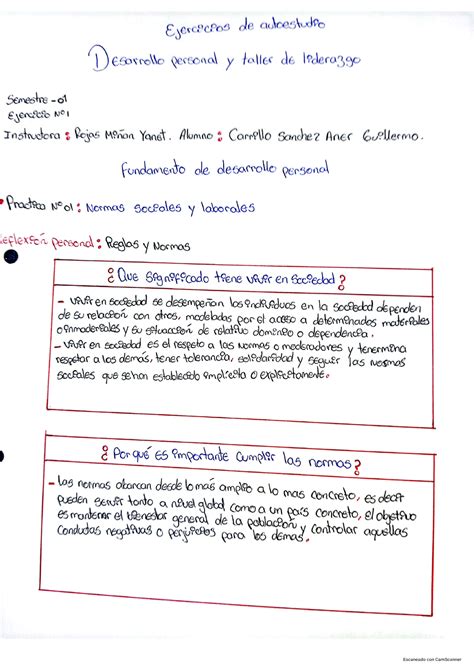 Ejercicios de autoestudio
Desarrollo personal y taller de liderazgo
Semestre - 01
Ejercicio N°1
Instructora : Rojas Miñan Yanet. Alumno : Carrillo Sanchez Aner Guillermo.
Fundamento de desarrollo personal
Practica N°01 : Normas sociales y laborales
Reflexión personal : Reglas y Normas
¿Que significado tiene vivir en sociedad?
- Vivir en sociedad se desempeñan los individuos en la sociedad dependen
de su relación con otros, modeladas por el acceso a determinados materiales
o inmateriales y su situación de relativo dominio o dependencia.
- Vivir en sociedad es el respeto a las normas o moderadores y
respetar a los demás, tener tolerancia, solidaridad y seguir las normas
sociales que se han establecido implícita o explícitamente.
¿Por qué es importante cumplir las normas?
- Las normas abarcan desde lo más amplio a lo mas concreto, es decir
pueden servir tanto a nivel global como a un país concreto, el objetivo
es mantener el bienestar general de la población y controlar aquellas
conductas negativas o perjuicios para los demas.
Escaneado con CamScanner